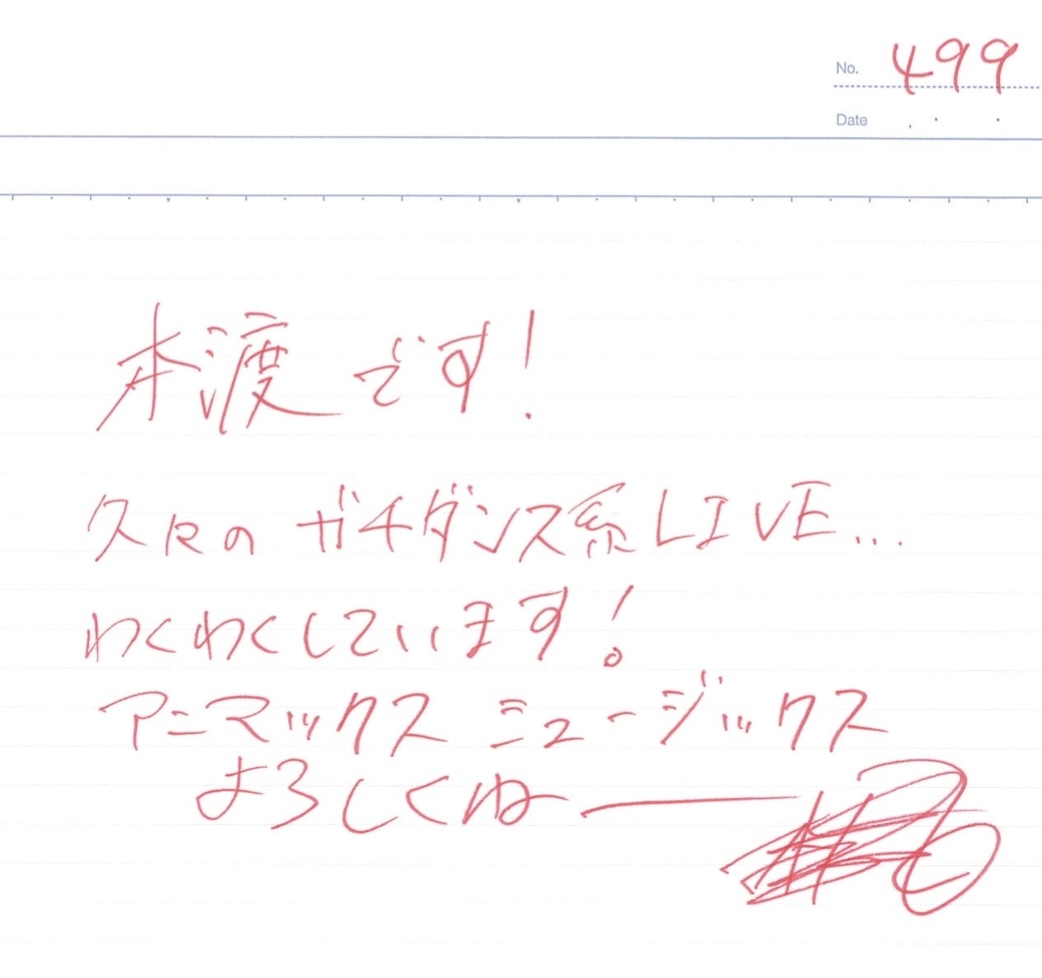 No. 499
Date
本渡です!
久々のガチダンス系LIVE...
わくわくしています!
アニマックス ミュージックス
よろしくねー